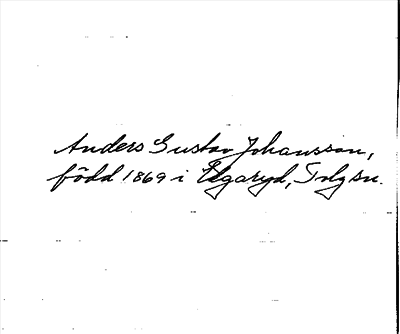 Anders Gustav Johansson,
född 1869 i Elgaryd, Tolg sn.